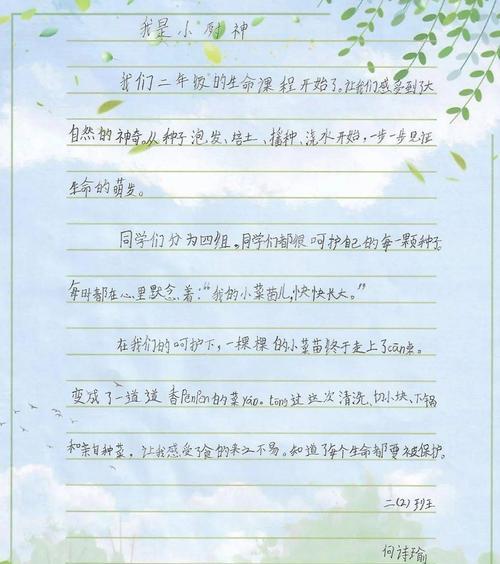 我是小厨神
我们二年级的生命课程开始了。让我们感受到了大
自然的神奇。从种子泡发、培土、播种、浇水开始,一步一步见证
生命的萌发。
同学们分为四组。同学们都很呵护自己的每一颗种子
每时都在心里默念着:“我的小菜苗儿,快快长大。”
在我们的呵护下,一棵棵的小菜苗终于走上了cān桌。
变成了一道道香PēnPēn的菜yáo。tōng过这次清洗、切小块、下锅
和亲自种菜,让我感受了食的来之不易。知道了每个生命都要被保护。
二(2)班
何诗瑜